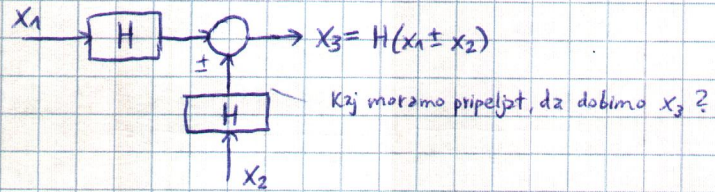 X1
H
X3 = H(x1 ± x2)
±
H
Kaj moramo pripeljat, da dobimo x3 ?
X2